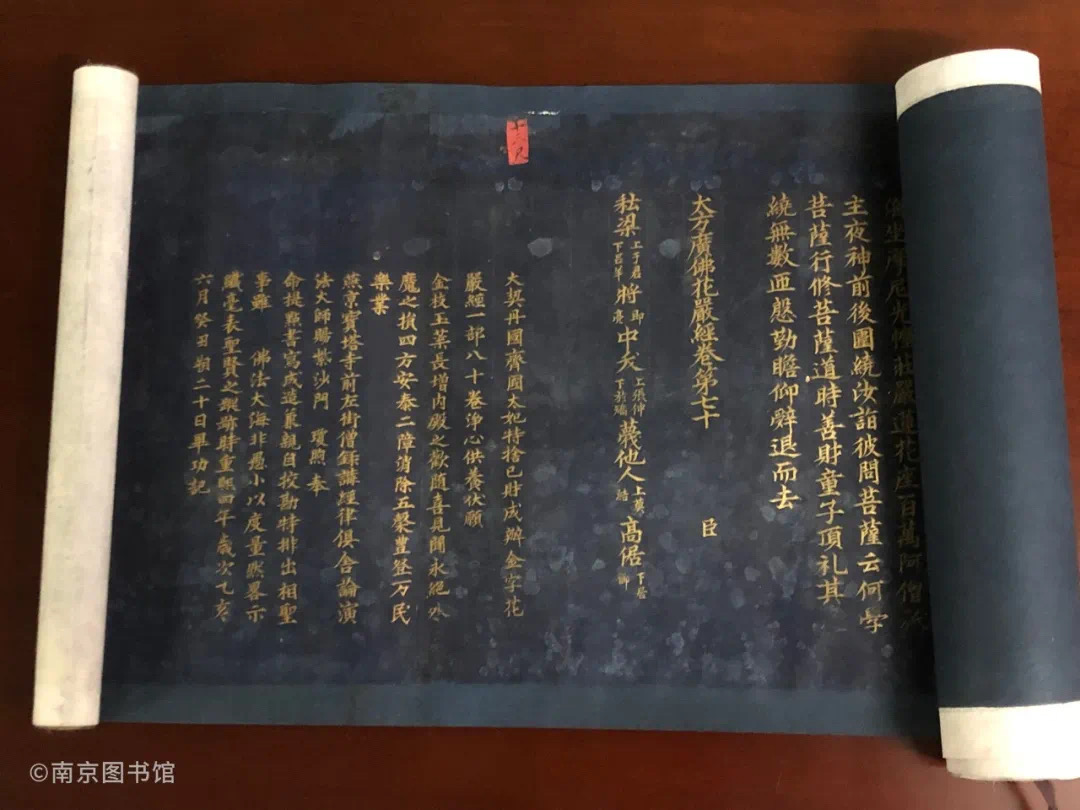 坐摩尼光幢莊嚴蓮花座百萬阿僧祇
主夜神前後圍繞汝詣彼問菩薩云何学
菩薩行修菩薩道時善財童子頂礼其
繞無數匝慇勤瞻仰辭退而去
大方廣佛花嚴經卷第七十
臣
秘梁 將 中夭 蔑他人 高倨
大契丹國齊國太妃特捨已財成辦金字花
嚴經一部八十卷淨心供養伏願
金枝玉葉長增内殿之歡随喜見聞永絶外
魔之擯四方安泰二障消除五槃豊登万民
樂業
燕京寶塔寺前左街僧録講經律俱舍論演
法大師賜紫沙門 瓊煦奉
命提點書寫成造兼親自挍勘特排出相聖
事雖 佛法大海非愚小以度量然畧示
纎毫表聖賢之蹤跡時重熈四年歳次乙亥
六月癸丑朔二十日畢功記
©南京图书馆